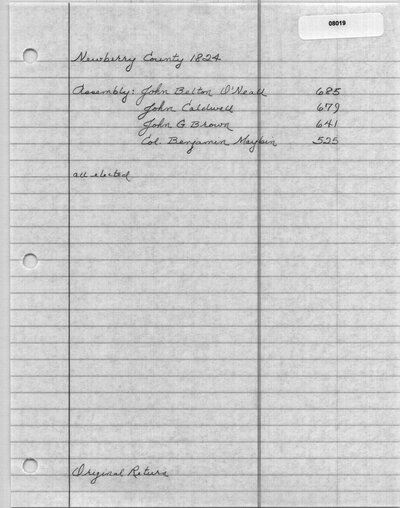 08019
Newberry County 1824
Assembly: John Belton O'Neall 685
John Caldwell 679
John G. Brown 641
Col. Benjamin Maybin 525
all elected
Original Return